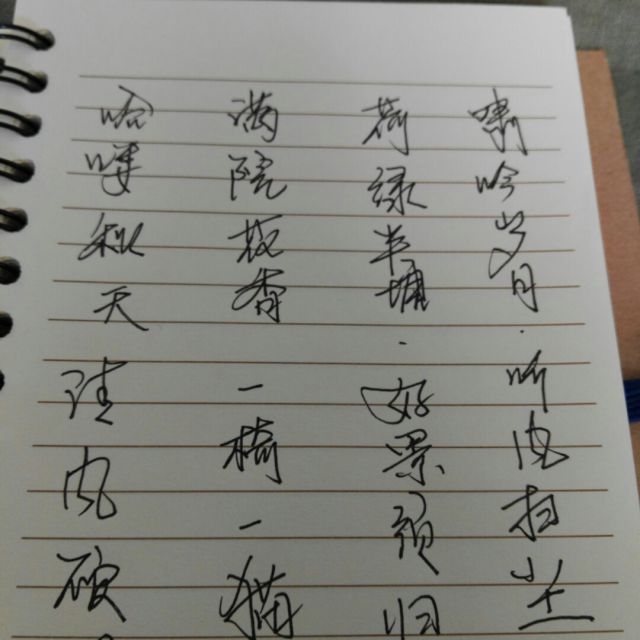 啸吟岁月·听扫尘
荷绿半塘·好景须归
满院香一椅一猫
秋天读风破